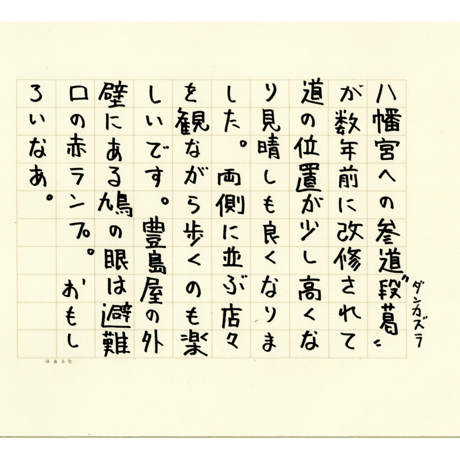 八幡宮への参道〝段葛〟
ダンカズラ
が数年前に改修されて
道の位置が少し高くな
り見晴しも良くなりま
した。両側に並ぶ店々
を観ながら歩くのも楽
しいです。豊島屋の外
壁にある鳩の眼は避難
口の赤ランプ。おもし
ろいなあ。